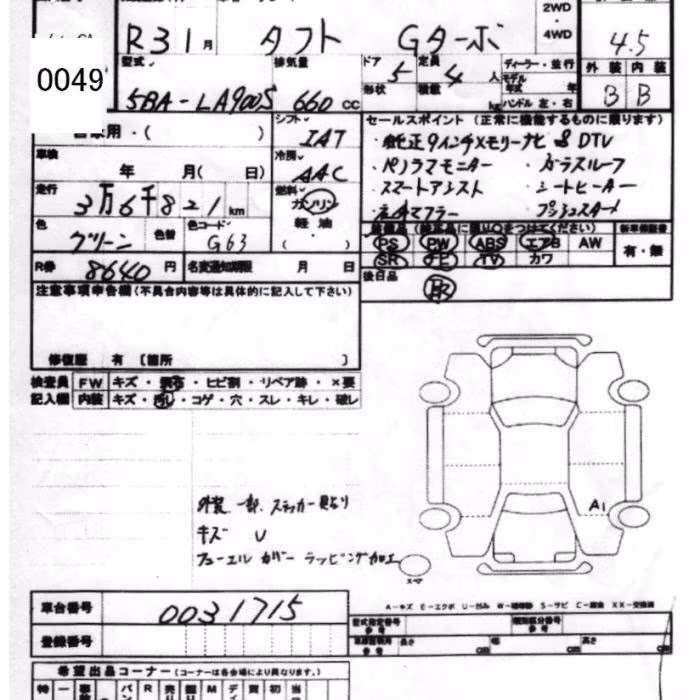 2WD
・
4WD
R31月 タフト Gターボ
4.5
0049
型式 5BA-LA900S
排気量 660 CC
ドア 5
形状
定員 4 人
積載 kg
ディーラー・並行
モデル
年式 年
ハンドル 左・右
外装 内装
B B
用・(
シフト IAT
車検 年 月( 日)
冷房 AAC
走行 3万6千821km
燃料 ガソリン
軽油
色 グリーン
色替
色コード G63
R券 8640円
名変通知期限 月 日
セールスポイント(正常に機能するものに限ります)
・純正9インチメモリーナビ 8 DTV
・パノラマモニター ・ガラスルーフ
・スマートアシスト ・シートヒーター
・プッシュスタート
PS PW ABS エアB AW
SR ナビ TV カワ
新車保証書
有・無
後日品
注意事項申告欄(不具合内容等は具体的に記入して下さい)
修復歴 有〔箇所 〕
検査員 FW キズ・・ヒビ割・リペア跡・×要
記入欄 内装 キズ・汚れ・コゲ・穴・スレ・キレ・破レ
外装 一部 ステッカー
キズ U
フューエル カバー ラッピング加工
A1
スペア
車台番号 0031715
登録番号
A-キズ E-エクボ U-凹み W-補修跡 S-サビ C-腐食 XX-交換済
型式指定番号
参考
類別区分番号
参考
参考 長さ cm 幅 cm 高さ cm
希望出品コーナー(コーナーは各会場により異なります。)